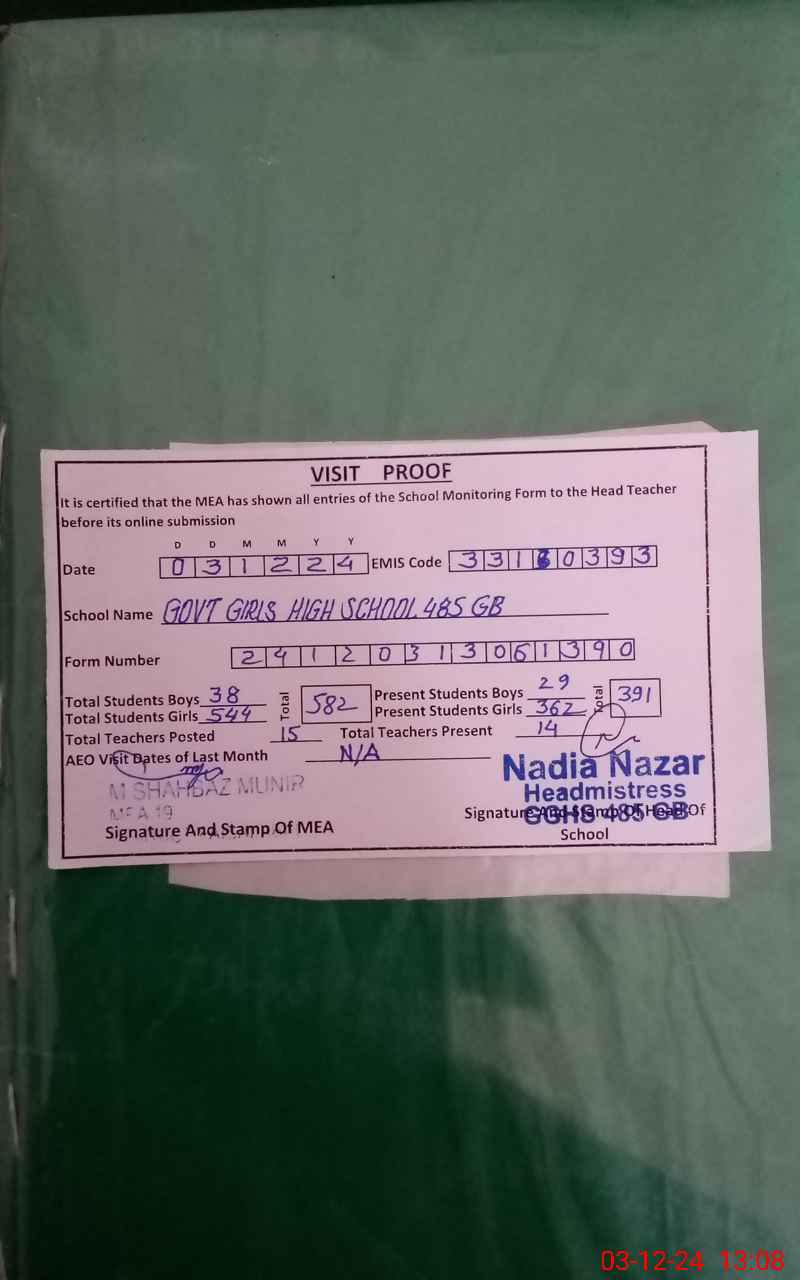 VISIT PROOF
It is certified that the MEA has shown all entries of the School Monitoring Form to the Head Teacher
before its online submission
D D M M Y Y
Date 0 3 1 2 2 4 EMIS Code 3 3 1 6 0 3 9 3
School Name GOVT GIRLS HIGH SCHOOL 485 GB
Form Number 2 4 1 2 0 3 1 3 0 6 1 3 9 0
Total Students Boys 38 Total 582 Present Students Boys 29 Total 391
Total Students Girls 544 Present Students Girls 362
Total Teachers Posted 15 Total Teachers Present 14
AEO Visit Dates of Last Month N/A
M SHAHBAZ MUNIR
MEA 19
Signature And Stamp Of MEA
Nadia Nazar
Headmistress
GGHS 485 GB
Signature And Stamp Of Head Of
School
03-12-24 13:08